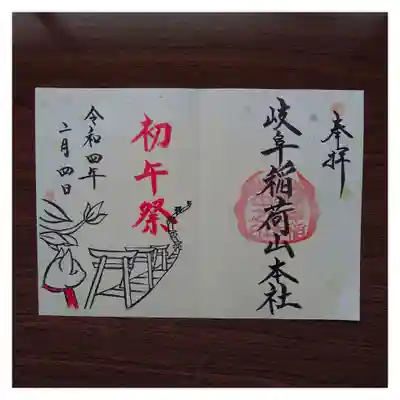 奉拝
岐阜稲荷山本社
初午祭
令和四年
二月四日